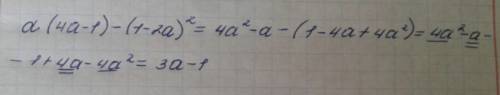 a(4a-1)-(1-2a)²=4a²-a-(1-4a+4a²)=4a²-a-
-1+4a-4a²=3a-1